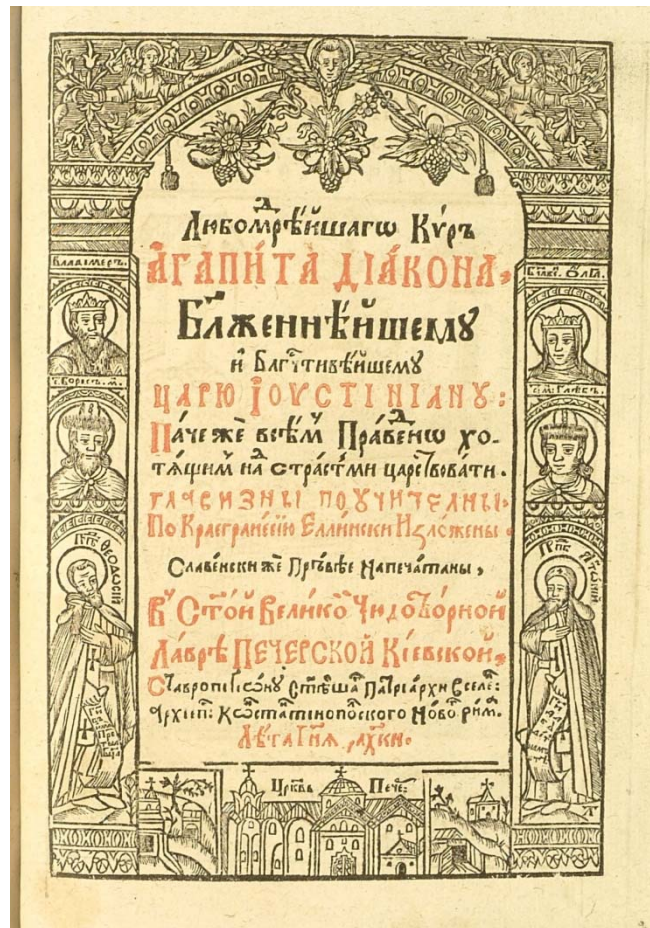 Любомⷣрѣ́йшагѡ Кѵ́ръ
А҆ГАПИ́ТА ДІА́КОНА,
Бл҃же́ннѣ́йшемꙋ
и҆ Блгⷭ҇тивѣ́йшемꙋ
ЦАРЮ І҆ОѴСТІНІАНꙋ:
Па́че же всѣ́мъ Пра́веⷣнѡ хо-
тѧ́щимъ наⷣ страстⷨи царⷭ҇твовати.
ГЛАВИЗНЫ ПОꙋЧИТЕЛНЫ,
По Краегране́сїю Еллински Изложены.
Славе́нски же Пръ́вѣе Напеча́таны,
Въ Ст҃о́й Вели́кⷪ҇ Чꙋдотво́рной
Ла́врѣ ПЕЧЕРСКОЙ Кі́евской,
Ставропигїѡ́нꙋ Ст҃ѣ́йшаⷢ Патрїа́рхи Вселеⷩ:
А҆рхїепⷭ: Кѡⷩстаⷩтинопоⷧского Но́воⷢ Ри́мⷶ.
Лѣ́та Гⷭ҇нѧ ҂а҃хк҃и.
Владімеръ.
Блаже: Ѻлга.
С: Борисъ. м:
С: м: Глѣбъ.
Прпⷣб: ѲЕОДОСІЙ
Прпⷣб: АⷩТОНІЙ
Цр҃ковъ Пече: